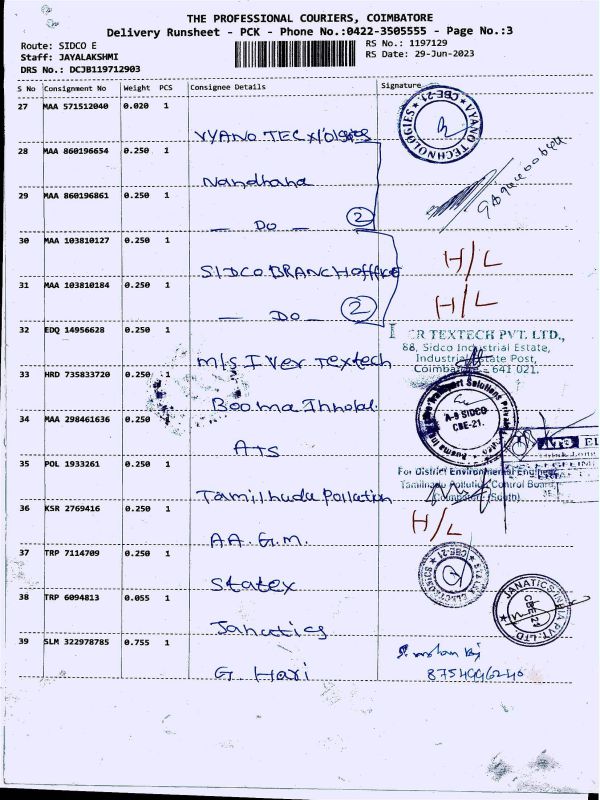 THE PROFESSIONAL COURIERS, COIMBATORE
Delivery Runsheet - PCK - Phone No.:0422-3505555 - Page No.:3
Route: SIDCO E
RS No.: 1197129
Staff: JAYALAKSHMI
RS Date: 29-Jun-2023
DRS No.: DCJB119712903
S No Consignment No Weight PCS Consignee Details Signature
27 MAA 571512040 0.020 1
VYANO TEC
VYANO TECHNOLOGIES CBE-21
28 MAA 860196654 0.250 1
Nandhana
29 MAA 860196861 0.250 1
— DO — 2
30 MAA 103810127 0.250 1
SIDCO BRANCH office
H/L
31 MAA 103810184 0.250 1
— DO — 2
H/L
32 EDQ 14956628 0.250 1
M/s I Ver Textech
ER TEXTECH PVT. LTD.,
88, Sidco Industrial Estate,
Industrial Estate Post,
Coimbatore - 641 021.
33 HRD 735833720 0.250 1
Booma
Transport Solutions Private
A-9 SIDCO
CBE-21.
34 MAA 298461636 0.250 1
ATS
35 POL 1933261 0.250 1
Tamilnadu Pollation
For District Environmental Engineer
Tamilnadu Pollution Control Board,
Coimbatore (South)
36 KSR 2769416 0.250 1
A.A. G.M.
H/L
37 TRP 7114709 0.250 1
Statex
CBE-21
38 TRP 6094813 0.055 1
Janatics
JANATICS INDIA PVT. LTD.
CBE-21
39 SLM 322978785 0.755 1
G. Hari
8754996240